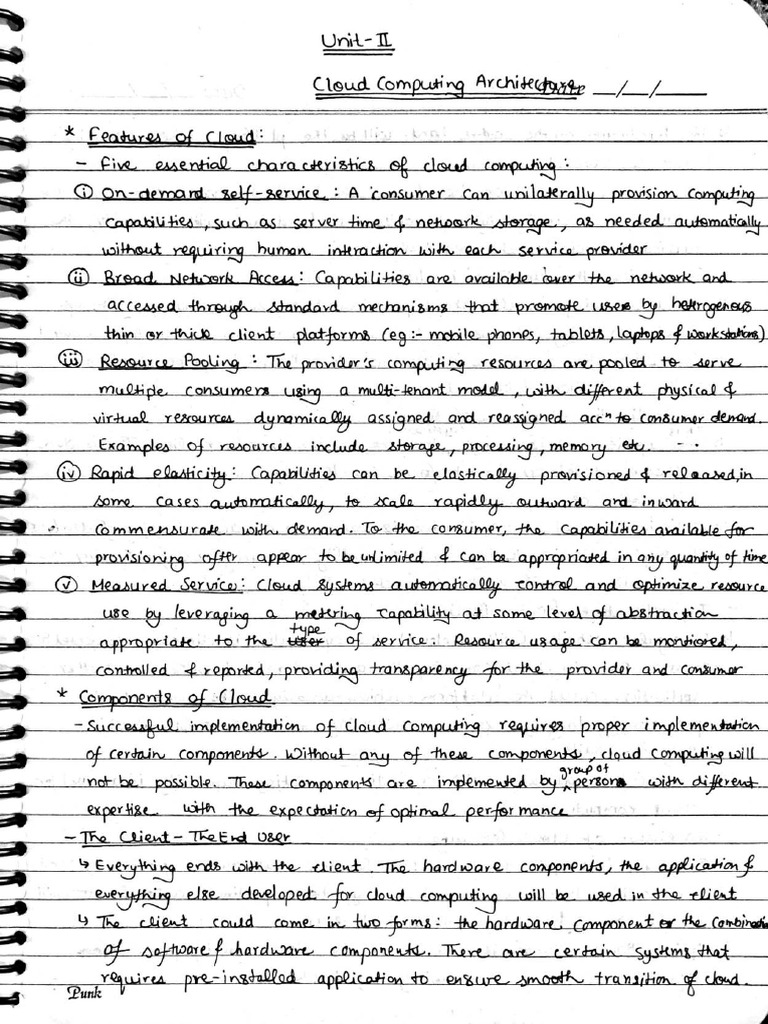 Unit-II
Cloud Computing Architecture __/__/____
* Features of Cloud:
- Five essential characteristics of cloud computing:
(i) On-demand self-service: A consumer can unilaterally provision computing
capabilities, such as server time & network storage, as needed automatically
without requiring human interaction with each service provider
(ii) Broad Network Access: Capabilities are available over the network and
accessed through standard mechanisms that promote use by heterogenous
thin or thick client platforms (eg:- mobile phones, tablets, laptops & workstations)
(iii) Resource Pooling: The provider's computing resources are pooled to serve
multiple consumers using a multi-tenant model, with different physical &
virtual resources dynamically assigned and reassigned accⁿ to consumer demand.
Examples of resources include storage, processing, memory etc.
(iv) Rapid elasticity: Capabilities can be elastically provisioned & released, in
some cases automatically, to scale rapidly outward and inward
commensurate with demand. To the consumer, the capabilities available for
provisioning often appear to be unlimited & can be appropriated in any quantity of time
(v) Measured Service: Cloud systems automatically control and optimize resource
use by leveraging a metering capability at some level of abstraction
appropriate to the type of service. Resource usage can be montiored,
controlled & reported, providing transparency for the provider and consumer
* Components of Cloud
- Successful implementation of cloud computing requires proper implementation
of certain components. Without any of these components, cloud computing will
not be possible. These components are implemented by group of persons with different
expertise with the expectation of optimal performance
- The Client - The End User
↳ Everything ends with the client. The hardware components, the application &
everything else developed for cloud computing will be used in the client
↳ The client could come in two forms: the hardware component or the combination
of software & hardware components. There are certain systems that
requires pre-installed application to ensure smooth transition of cloud.
Punk